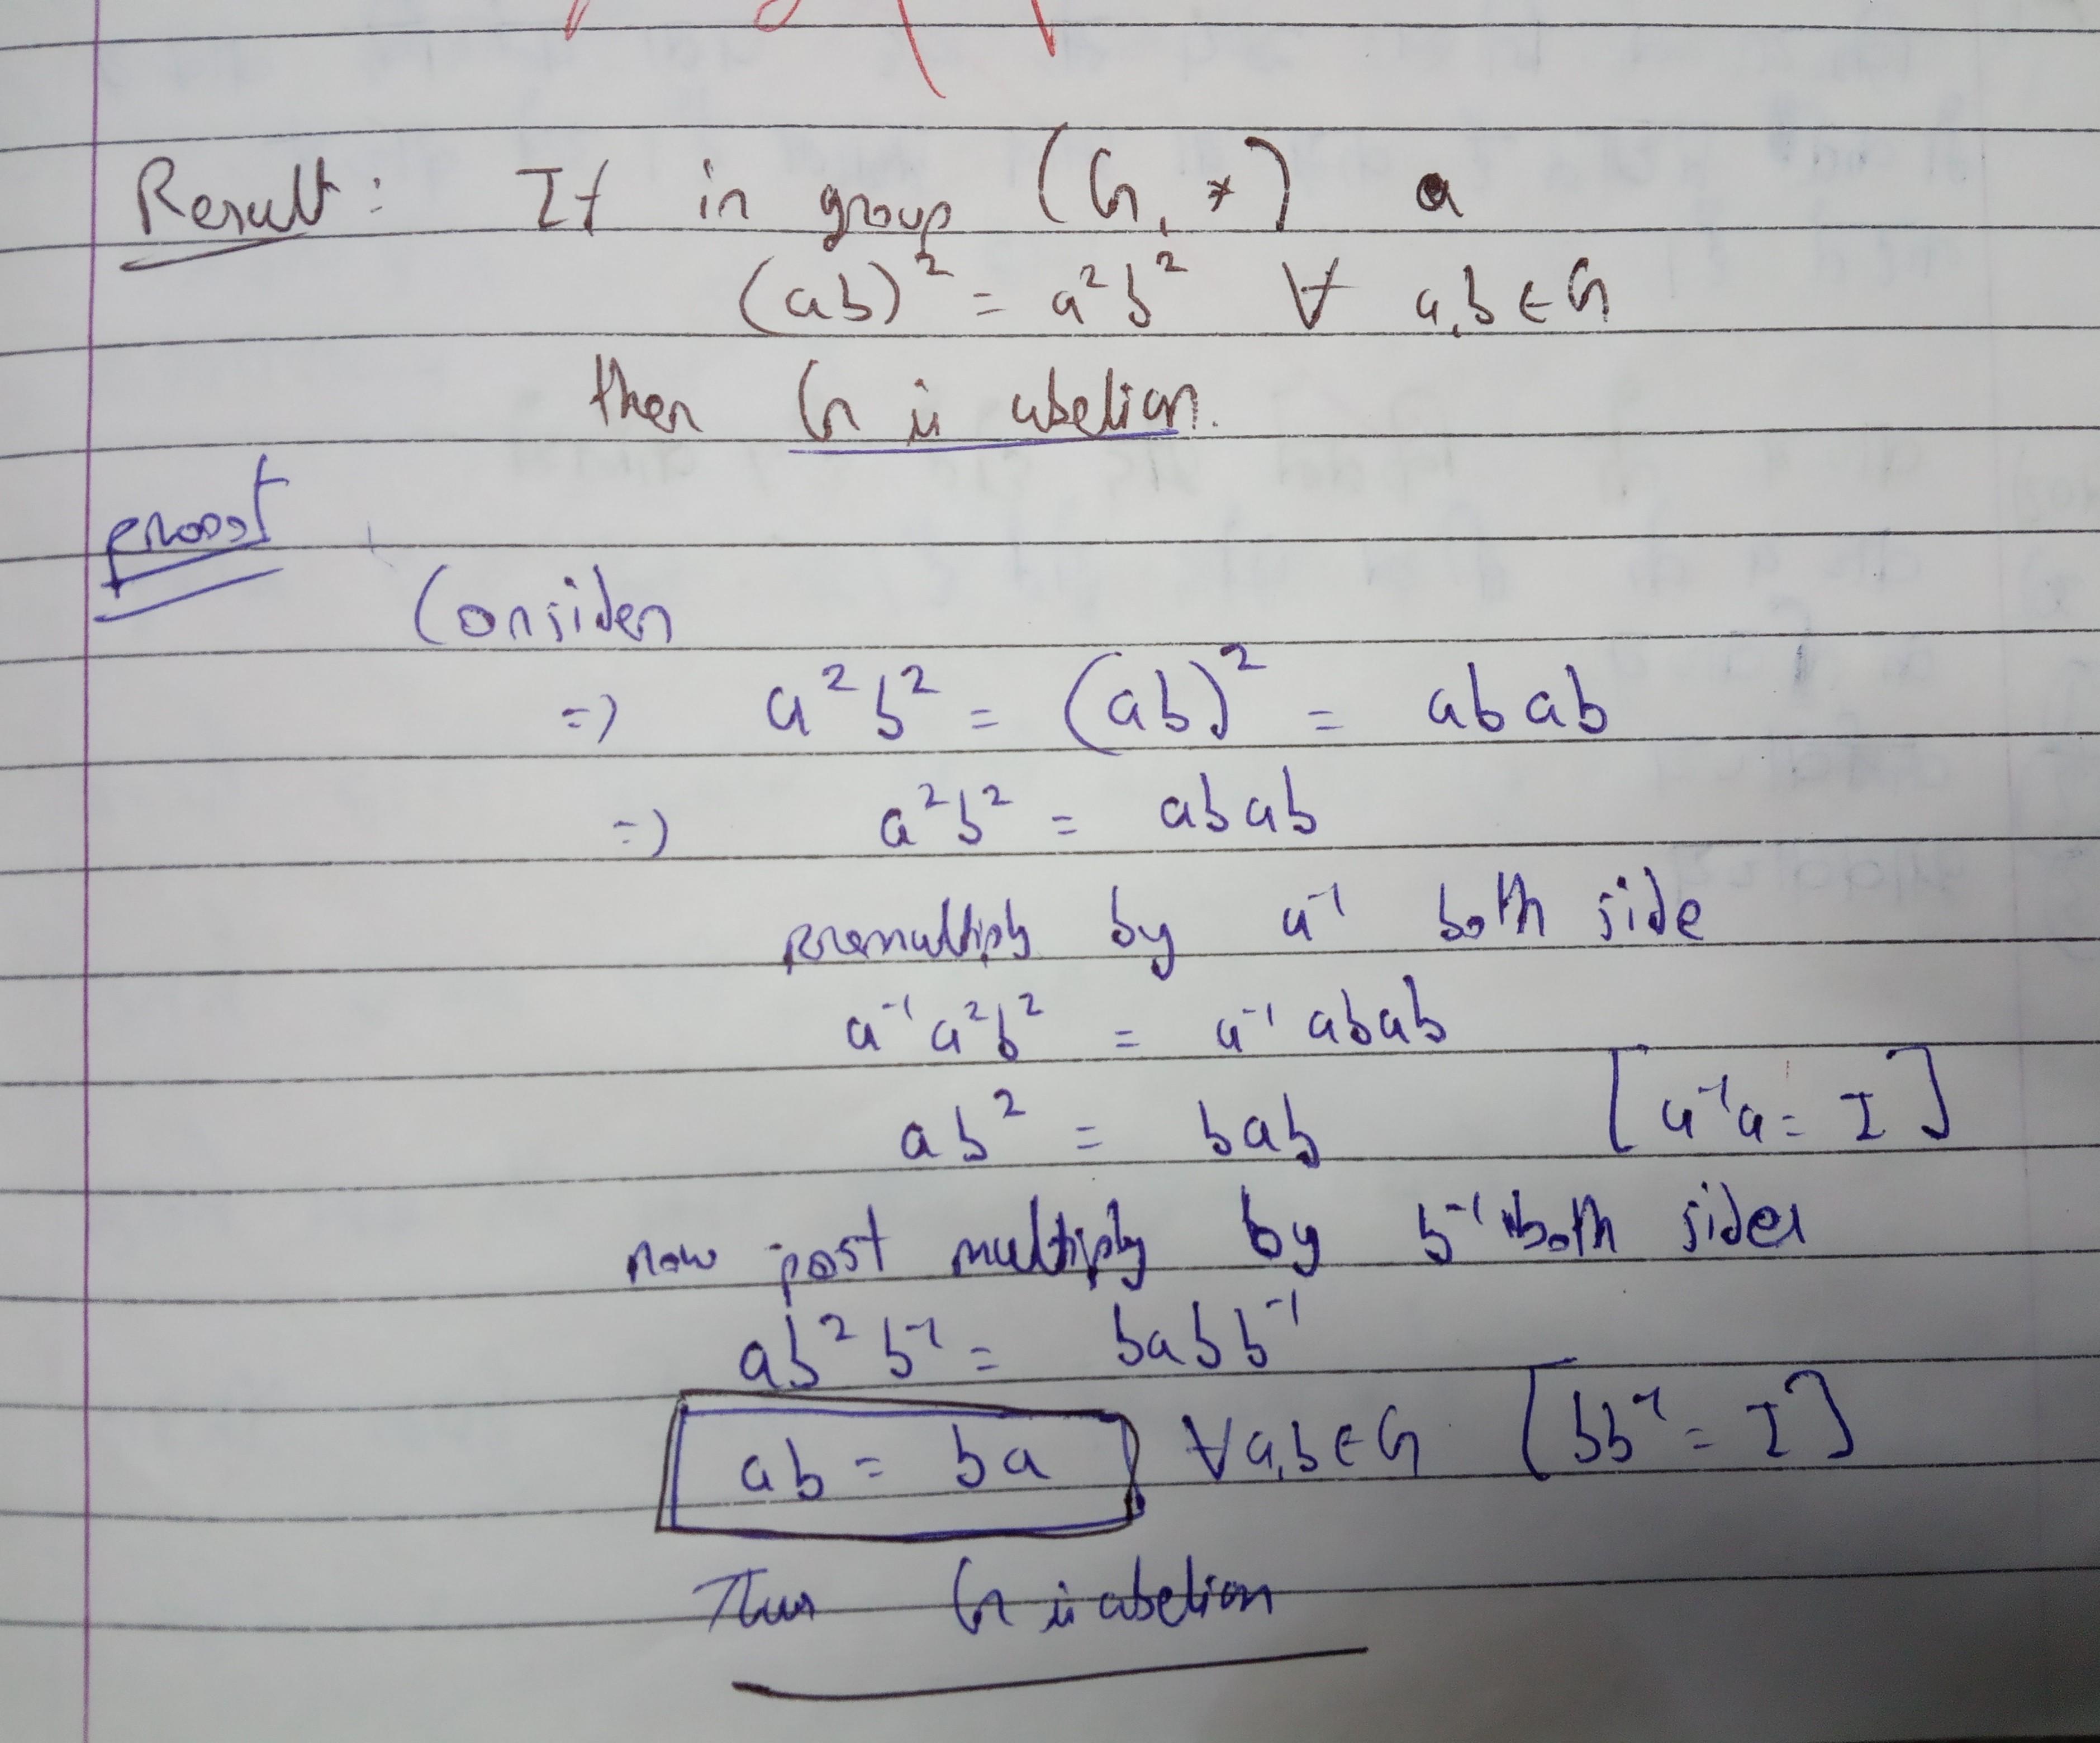 Result: If in group (G, *) a
(ab)² = a²b² ∀ a,b ∈ G
then G is abelian.
proof
Consider
=) a²b² = (ab)² = abab
=) a²b² = abab
premultiply by a⁻¹ both side
a⁻¹a²b² = a⁻¹abab
ab² = bab [a⁻¹a = I]
now post multiply by b⁻¹ both sides
ab²b⁻¹ = babb⁻¹
ab = ba ∀a,b∈G [bb⁻¹ = I]
Thus G is abelian